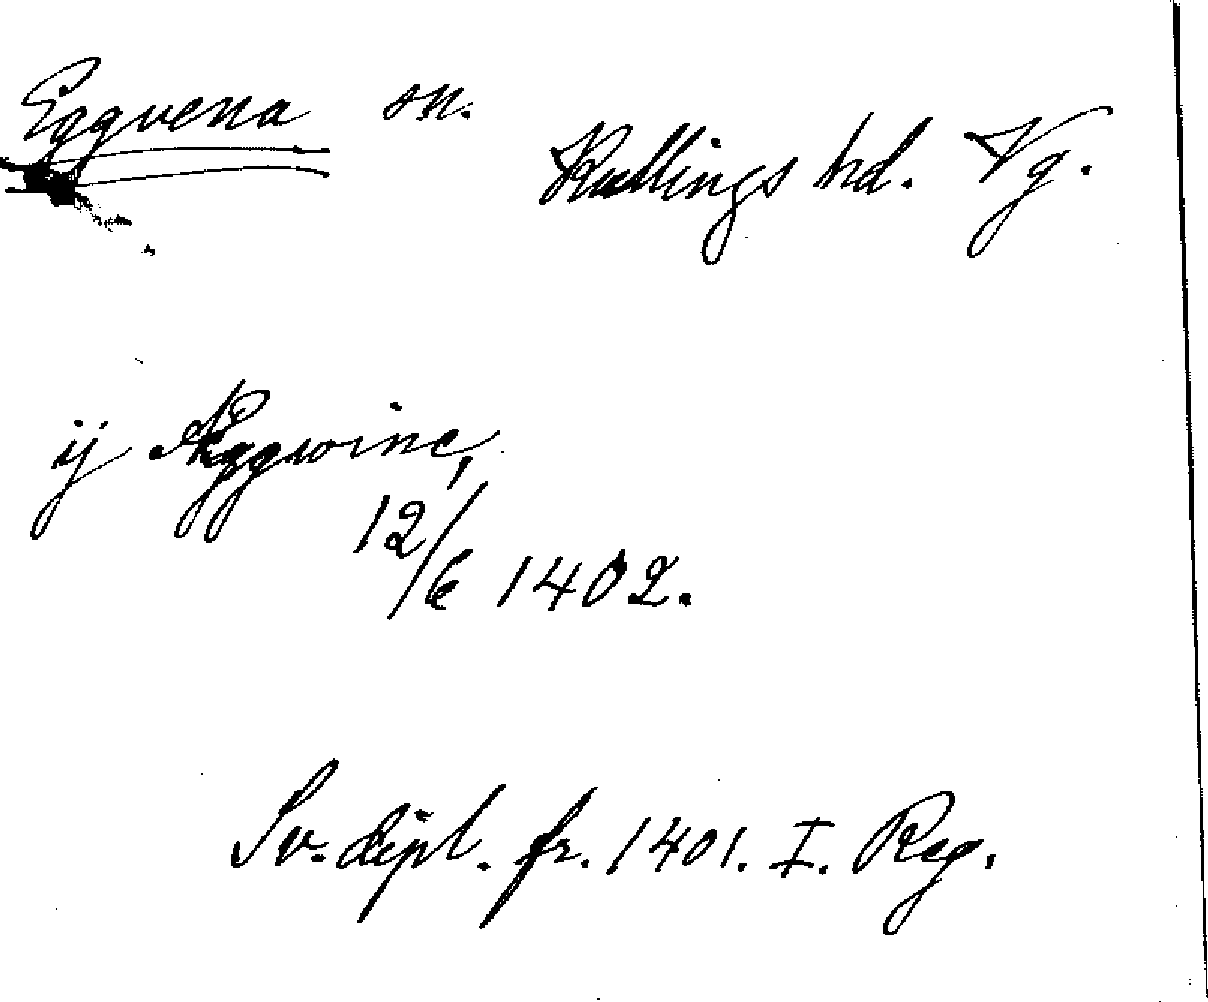 Eggvena sn.
Kullings hd. Vg.
ij Æggwine,
12/6 1402.
Sv. dipl. fr. 1401. I. Reg.